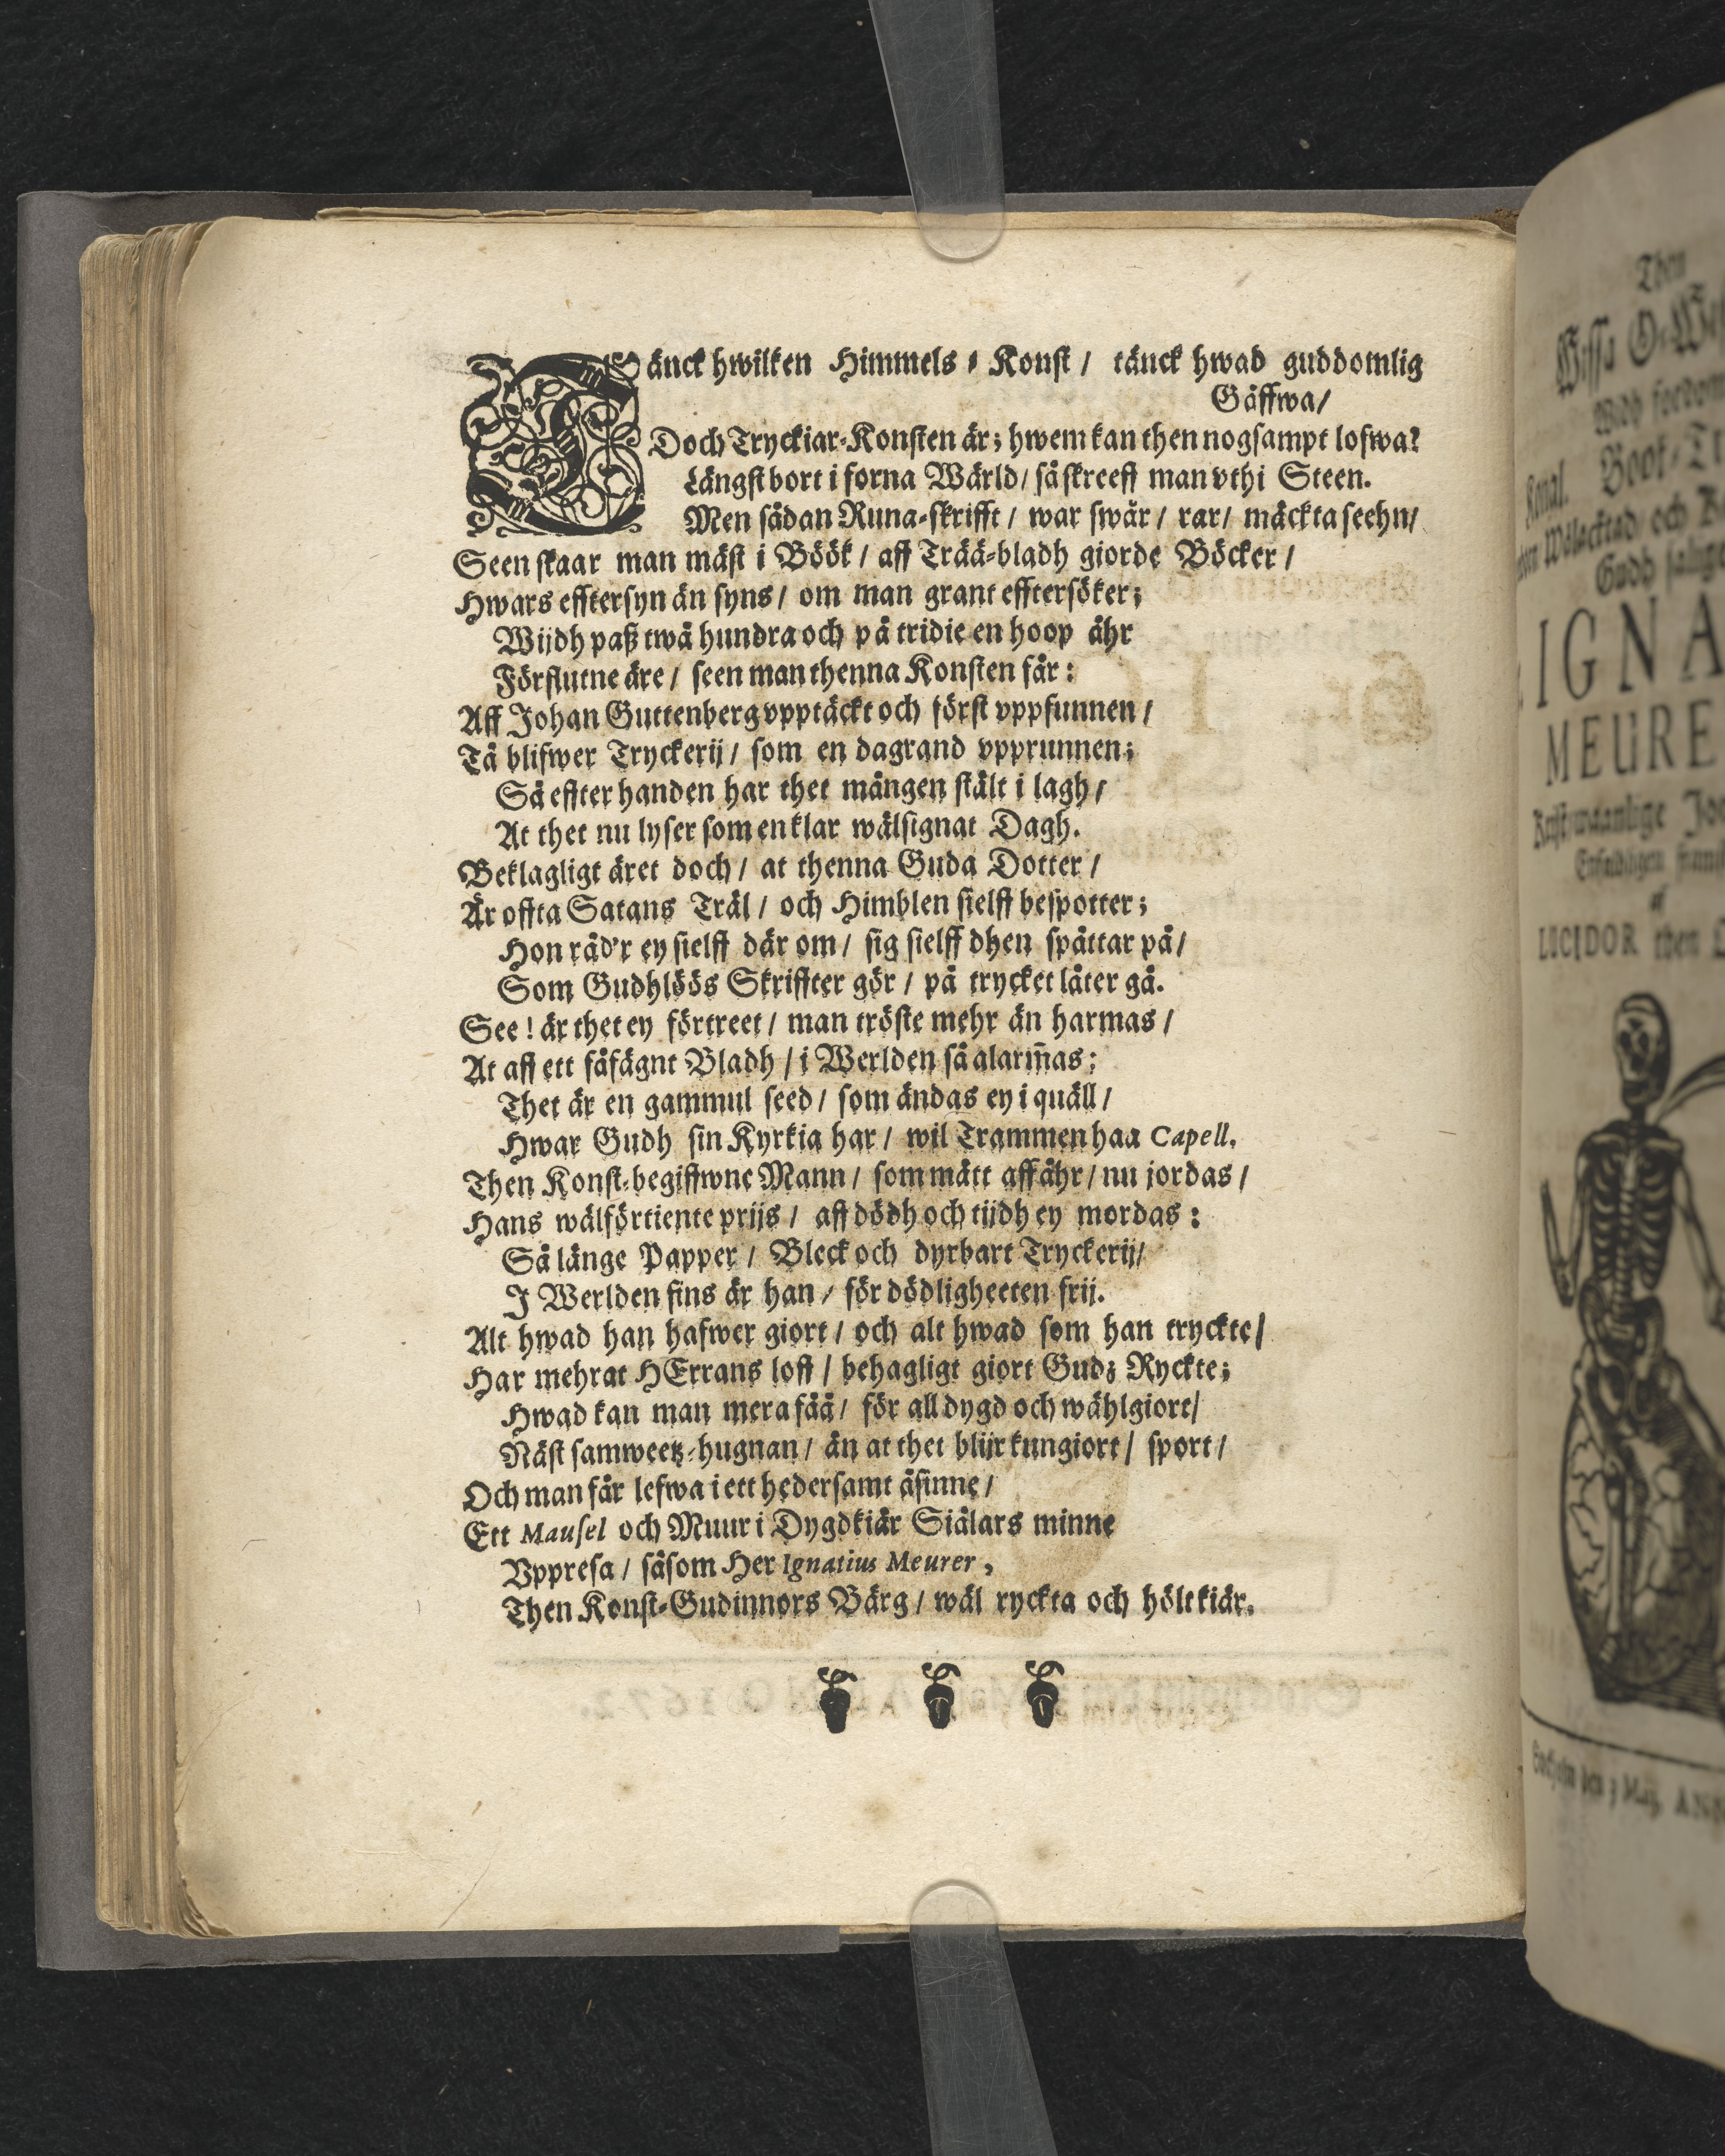 Tänck hwilken Himmels-Konst / tänck hwad guddomlig
Gåffwa /
Doch Tryckiar-Konsten är; hwem kan then nogsampt lofwa?
Längst bort i forna Wärld / så skreeff man vthi Steen.
Men sådan Runa-skrifft / war swår / rar / mäckta seehn /
Seen skaar man mäst i Böök / aff Trää-bladh giorde Böcker /
Hwars efftersyn än syns / om man grant efftersöker;
Wijdh paß twå hundra och på tridie en hoop åhr
Förflutne äre / seen man thenna Konsten får:
Aff Johan Guttenberg vpptäckt och först vppfunnen /
Tå blifwer Tryckerij / som en dagrand vpprunnen;
Så effter handen har thet mången stält i lagh /
At thet nu lyser som en klar wälsignat Dagh.
Beklagligt äret doch / at thenna Guda Dotter /
Är offta Satans Träl / och Himblen sielff bespotter;
Hon råd'r ey sielff där om / sig sielff dhen spåttar på /
Som Gudhlöös Skriffter gör / på trycket låter gå.
See! är thet ey förtreet / man tröste mehr än harmas /
At aff ett fåfägnt Bladh / i Werlden så alarm̃as;
Thet är en gammul seed / som ändas ey i quäll /
Hwar Gudh sin Kyrkia har / wil Trammen haa Capell.
Then Konst-begiffwne Mann / som mått aff åhr / nu jordas /
Hans wälförtiente prijs / aff dödh och tijdh ey mordas:
Så länge Papper / Bleck och dyrbart Tryckerij /
J Werlden fins är han / för dödligheeten frij.
Alt hwad han hafwer giort / och alt hwad som han tryckte /
Har mehrat HErrans loff / behagligt giort Gudz Ryckte;
Hwad kan man mera fåå / för all dygd och wählgiort /
Näst samweetz-hugnan / än at thet blijr kungiort / sport /
Och man får lefwa i ett hedersamt åsinne /
Ett Mausel och Muur i Dygdkiär Siälars minne
Vppresa / såsom Her Ignatius Meurer,
Then Konst-Gudinnors Bärg / wäl ryckta och hölt kiär.
Then
IGNA
MEURE
af
LICIDOR then